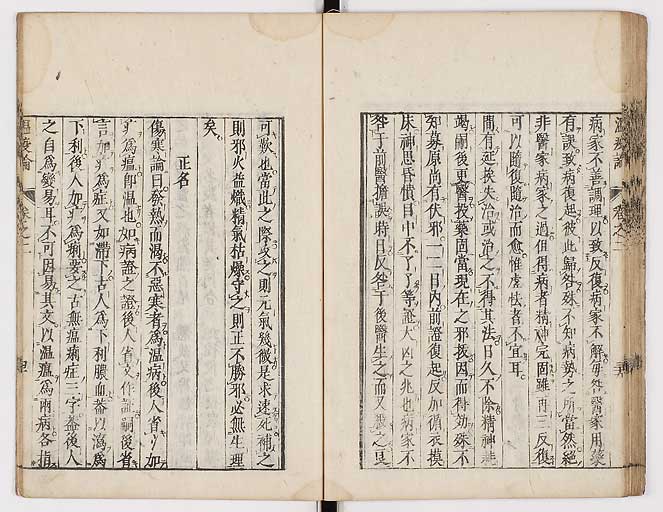 病家不善調理以致反復病家不解每咎醫家用藥
有誤致病復起彼此歸咎殊不知病勢之所當然絕
非醫家病家之過但得病者精神完固雖再三反復
可以隨復隨治而愈惟虛怯者不宜耳
間有延挨失治或治之不得其法日久不除精神耗
竭嗣後更醫投藥固當現在之邪拔因而得効殊不
知募原尚有伏邪一二日內前證復起反加循衣摸
床神思昏憒目中不了了等證大凶之兆也病家不
咎于前醫擔誤時日反咎于後醫生之而又殺之良
可歎也當此之際攻之則元氣幾微是求速死補之
則邪火益熾精氣枯燥守之則正不勝邪必無生理
矣
正名
傷寒論曰發熱而渴不惡寒者為温病後人省氵加
疒為瘟即温也如病證之證後人省文作証嗣後省
言加疒為症又如滯下古人為下利膿血蓋以瀉為
下利後人加疒為痢要之古無瘟痢症三字蓋後人
之自為變易耳不可因易其文以温瘟為兩病各指